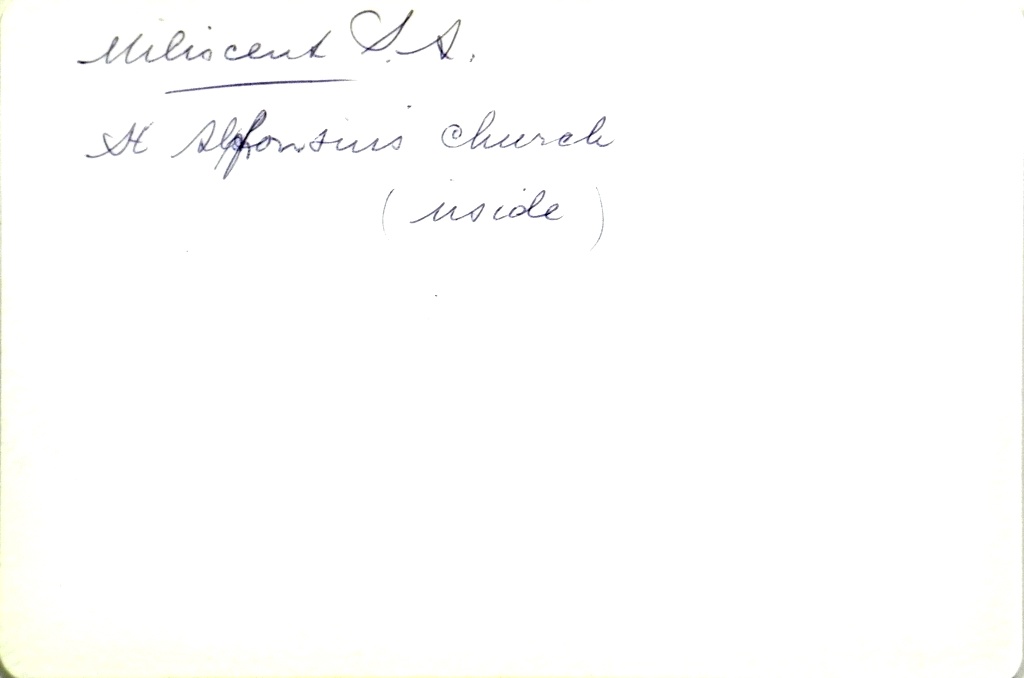 Miliscent S.A.
St Alfonsius church
(inside)